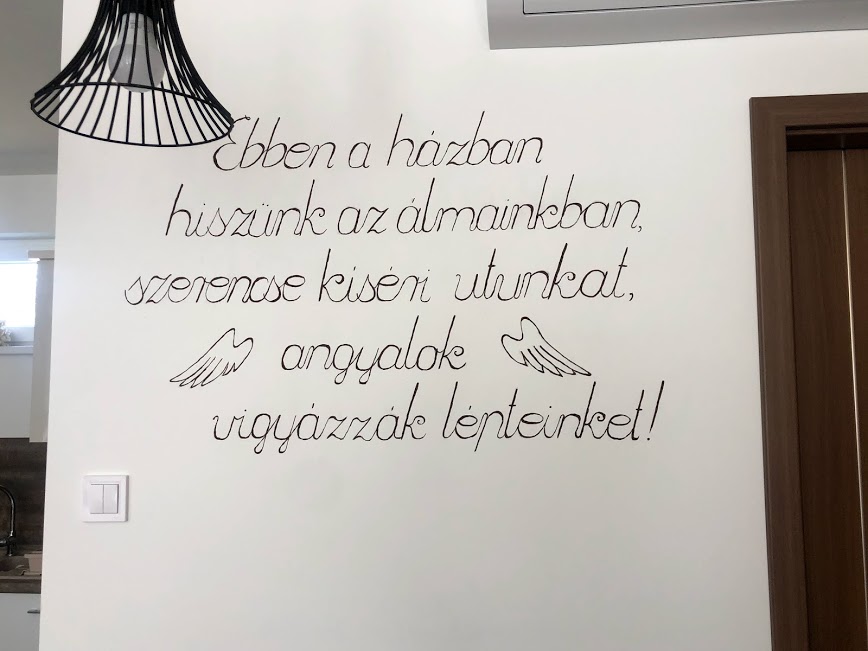 Ebben a házban
hiszünk az álmainkban,
szerencse kiséri utunkat,
angyalok
vigyázzák lépteinket!